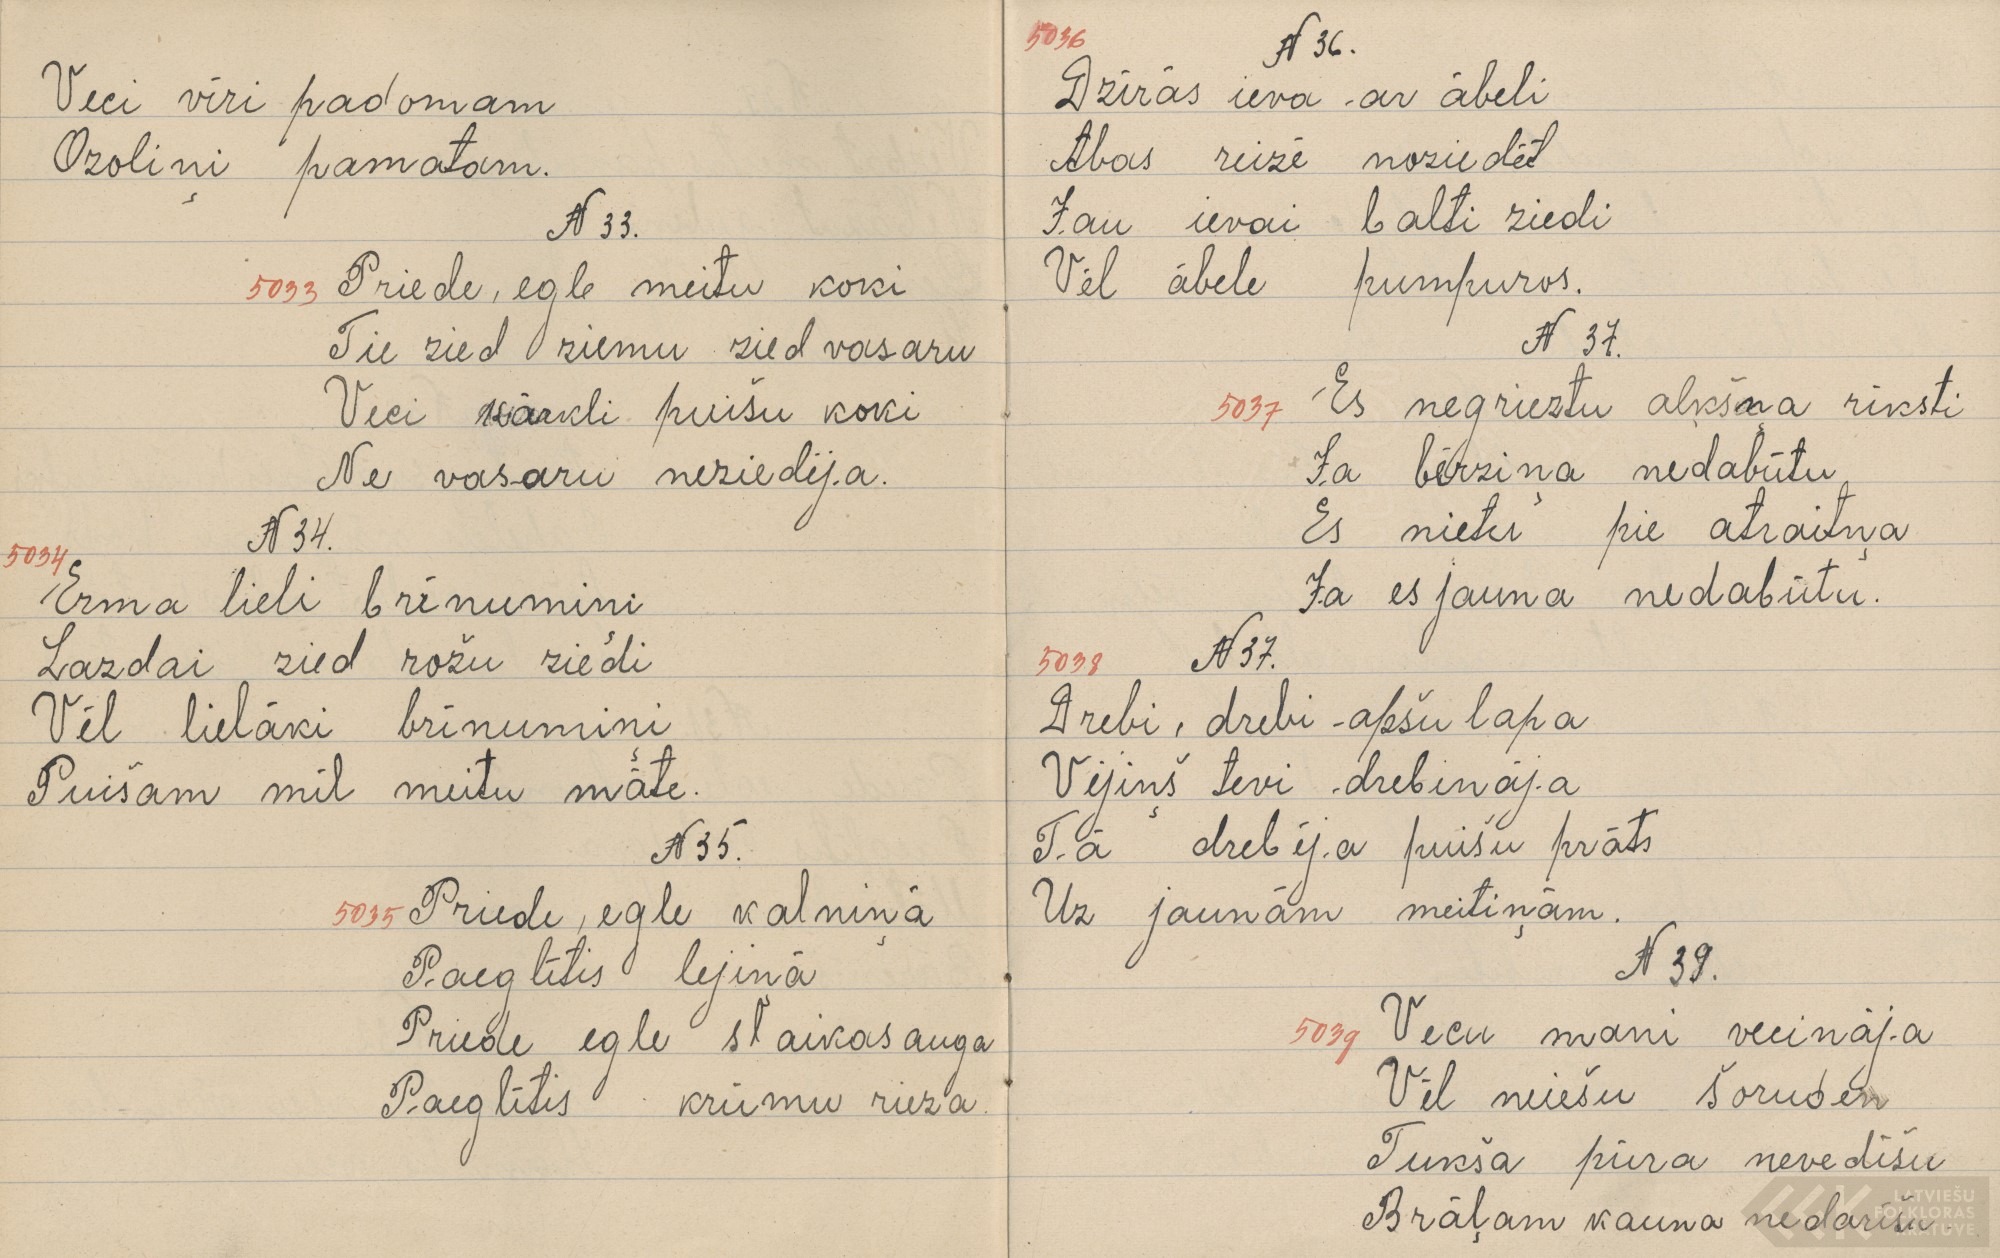 Veci vīri padomam
Ozoliņi pamatam.
N 33.
5033 Priede, egle meitu koki
Tie zied ziemu zied vasaru
Veci kārkli puišu koki
Ne vasaru neziedēja.
N 34.
5034
Erma lieli brīnumiņi
Lazdai zied rožu ziedi
Vēl lielāki brīnumiņi
Puišam mīl meitu māte.
N 35.
5035 Priede, egle kalniņā
Paeglītis lejiņā
Priede egle staikas auga
Paeglītis krūmu rieza.
5036 N 36.
Dzīrās ieva ar ābeli
Abas reizē noziedēt
Jau ievai balti ziedi
Vēl ābele pumpuros.
N 37.
5037 Es negrieztu aļkšņa rīksti
Ja bērziņa nedabūtu
Es nietu pie atraitņa
Ja es jauna nedabūtu.
5038 N 37.
Drebi, drebi apšu lapa
Vējiņš tevi drebināja
Tā drebēja puišu prāts
Uz jaunām meitiņām.
N 39.
5039 Vecu mani vecināja
Vēl neiešu šoruden
Tukša pūra nevedīšu
Brāļam kauna nedarīšu.
LATVIEŠU
FOLKLORAS
KRĀTUVE